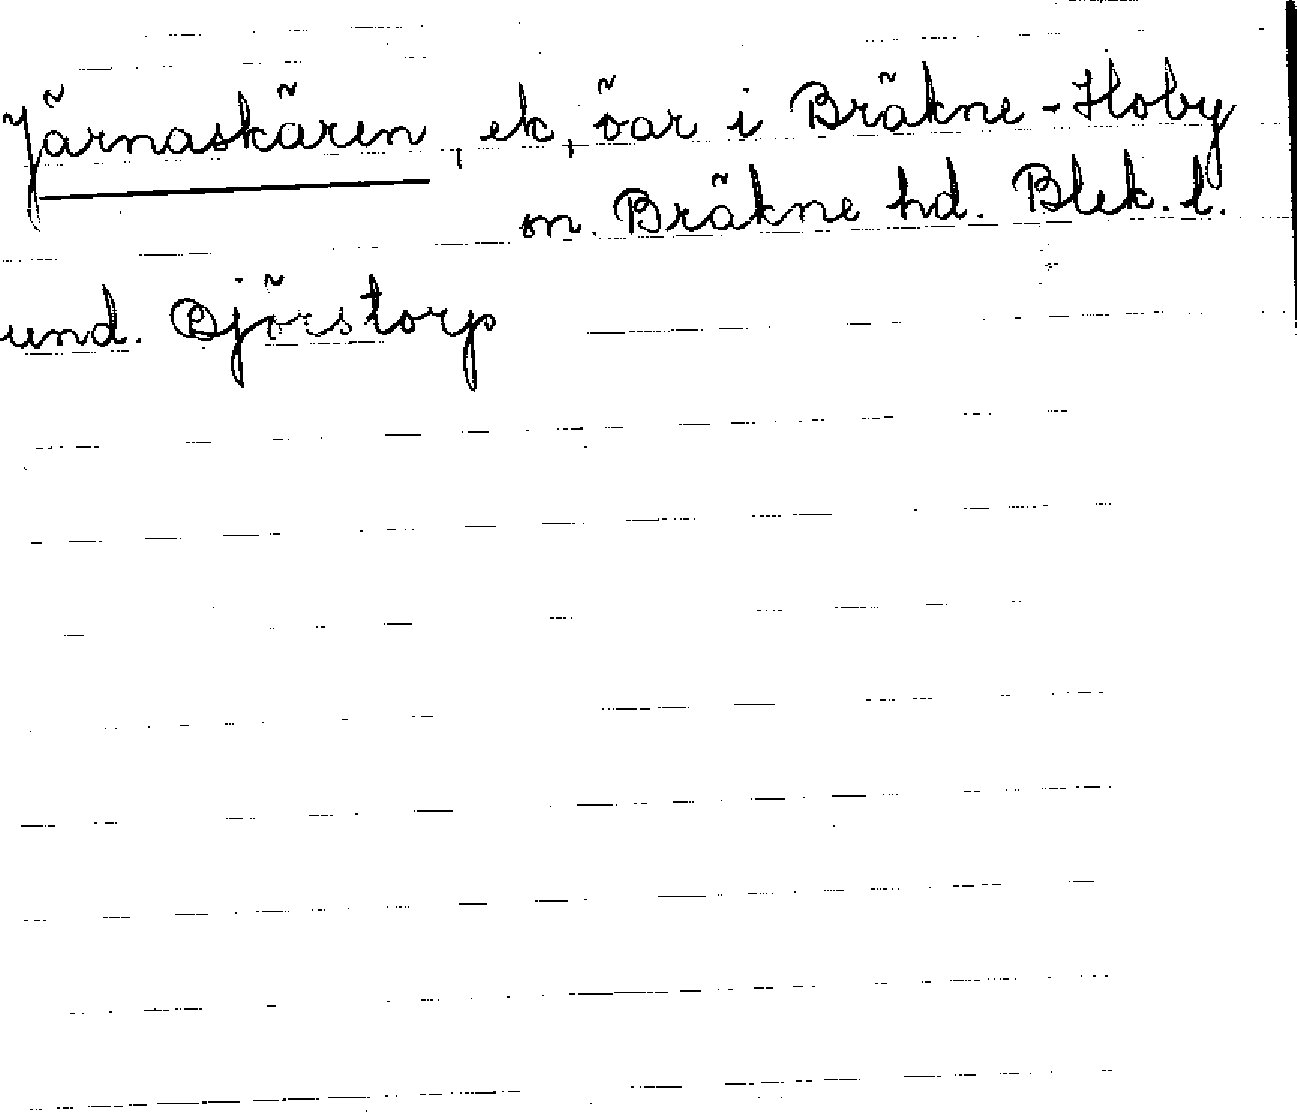 Järnaskären, ek, öar i Bräkne-Hoby
sn. Bräkne hd. Blek. l.
und. Björstorp